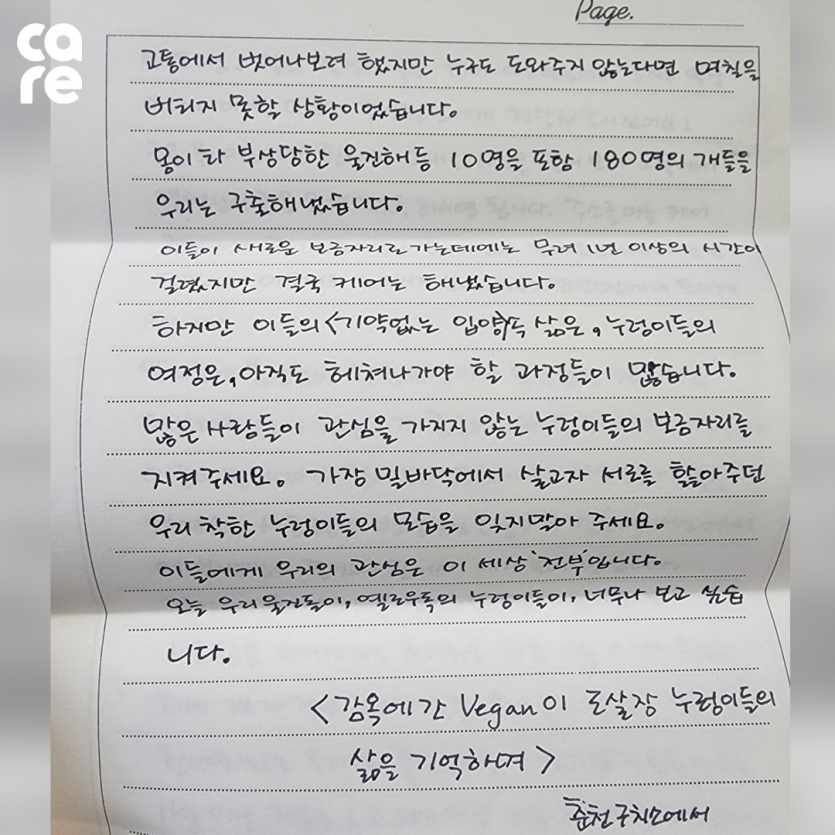 care
Page.
고통에서 벗어나보려 했지만 누구도 도와주지 않는다면 며칠을
버티지 못할 상황이었습니다.
몽이와 부상당한 울진해등 10명을 포함 180명의 개들을
우리는 구출해냈습니다.
이들이 새로운 보금자리로 가는데에는 무려 1년 이상의 시간이
걸렸지만 결국 케어는 해냈습니다.
하지만 이들의 <기약없는 입양>득 삶은, 누렁이들의
여정은, 아직도 헤쳐나가야 할 과정들이 많습니다.
많은 사람들이 관심을 가지지 않는 누렁이들의 보금자리를
지켜주세요. 가장 밑바닥에서 살고자 서로를 핥아주던
우리 착한 누렁이들의 모습을 잊지말아 주세요.
이들에게 우리의 관심은 이 세상 '전부'입니다.
오늘 우리 울진둥이, 옐로우독의 누렁이들이, 너무나 보고 싶습
니다.
<감옥에 간 Vegan이 도살장 누렁이들의
삶을 기억하며>
춘천구치소에서